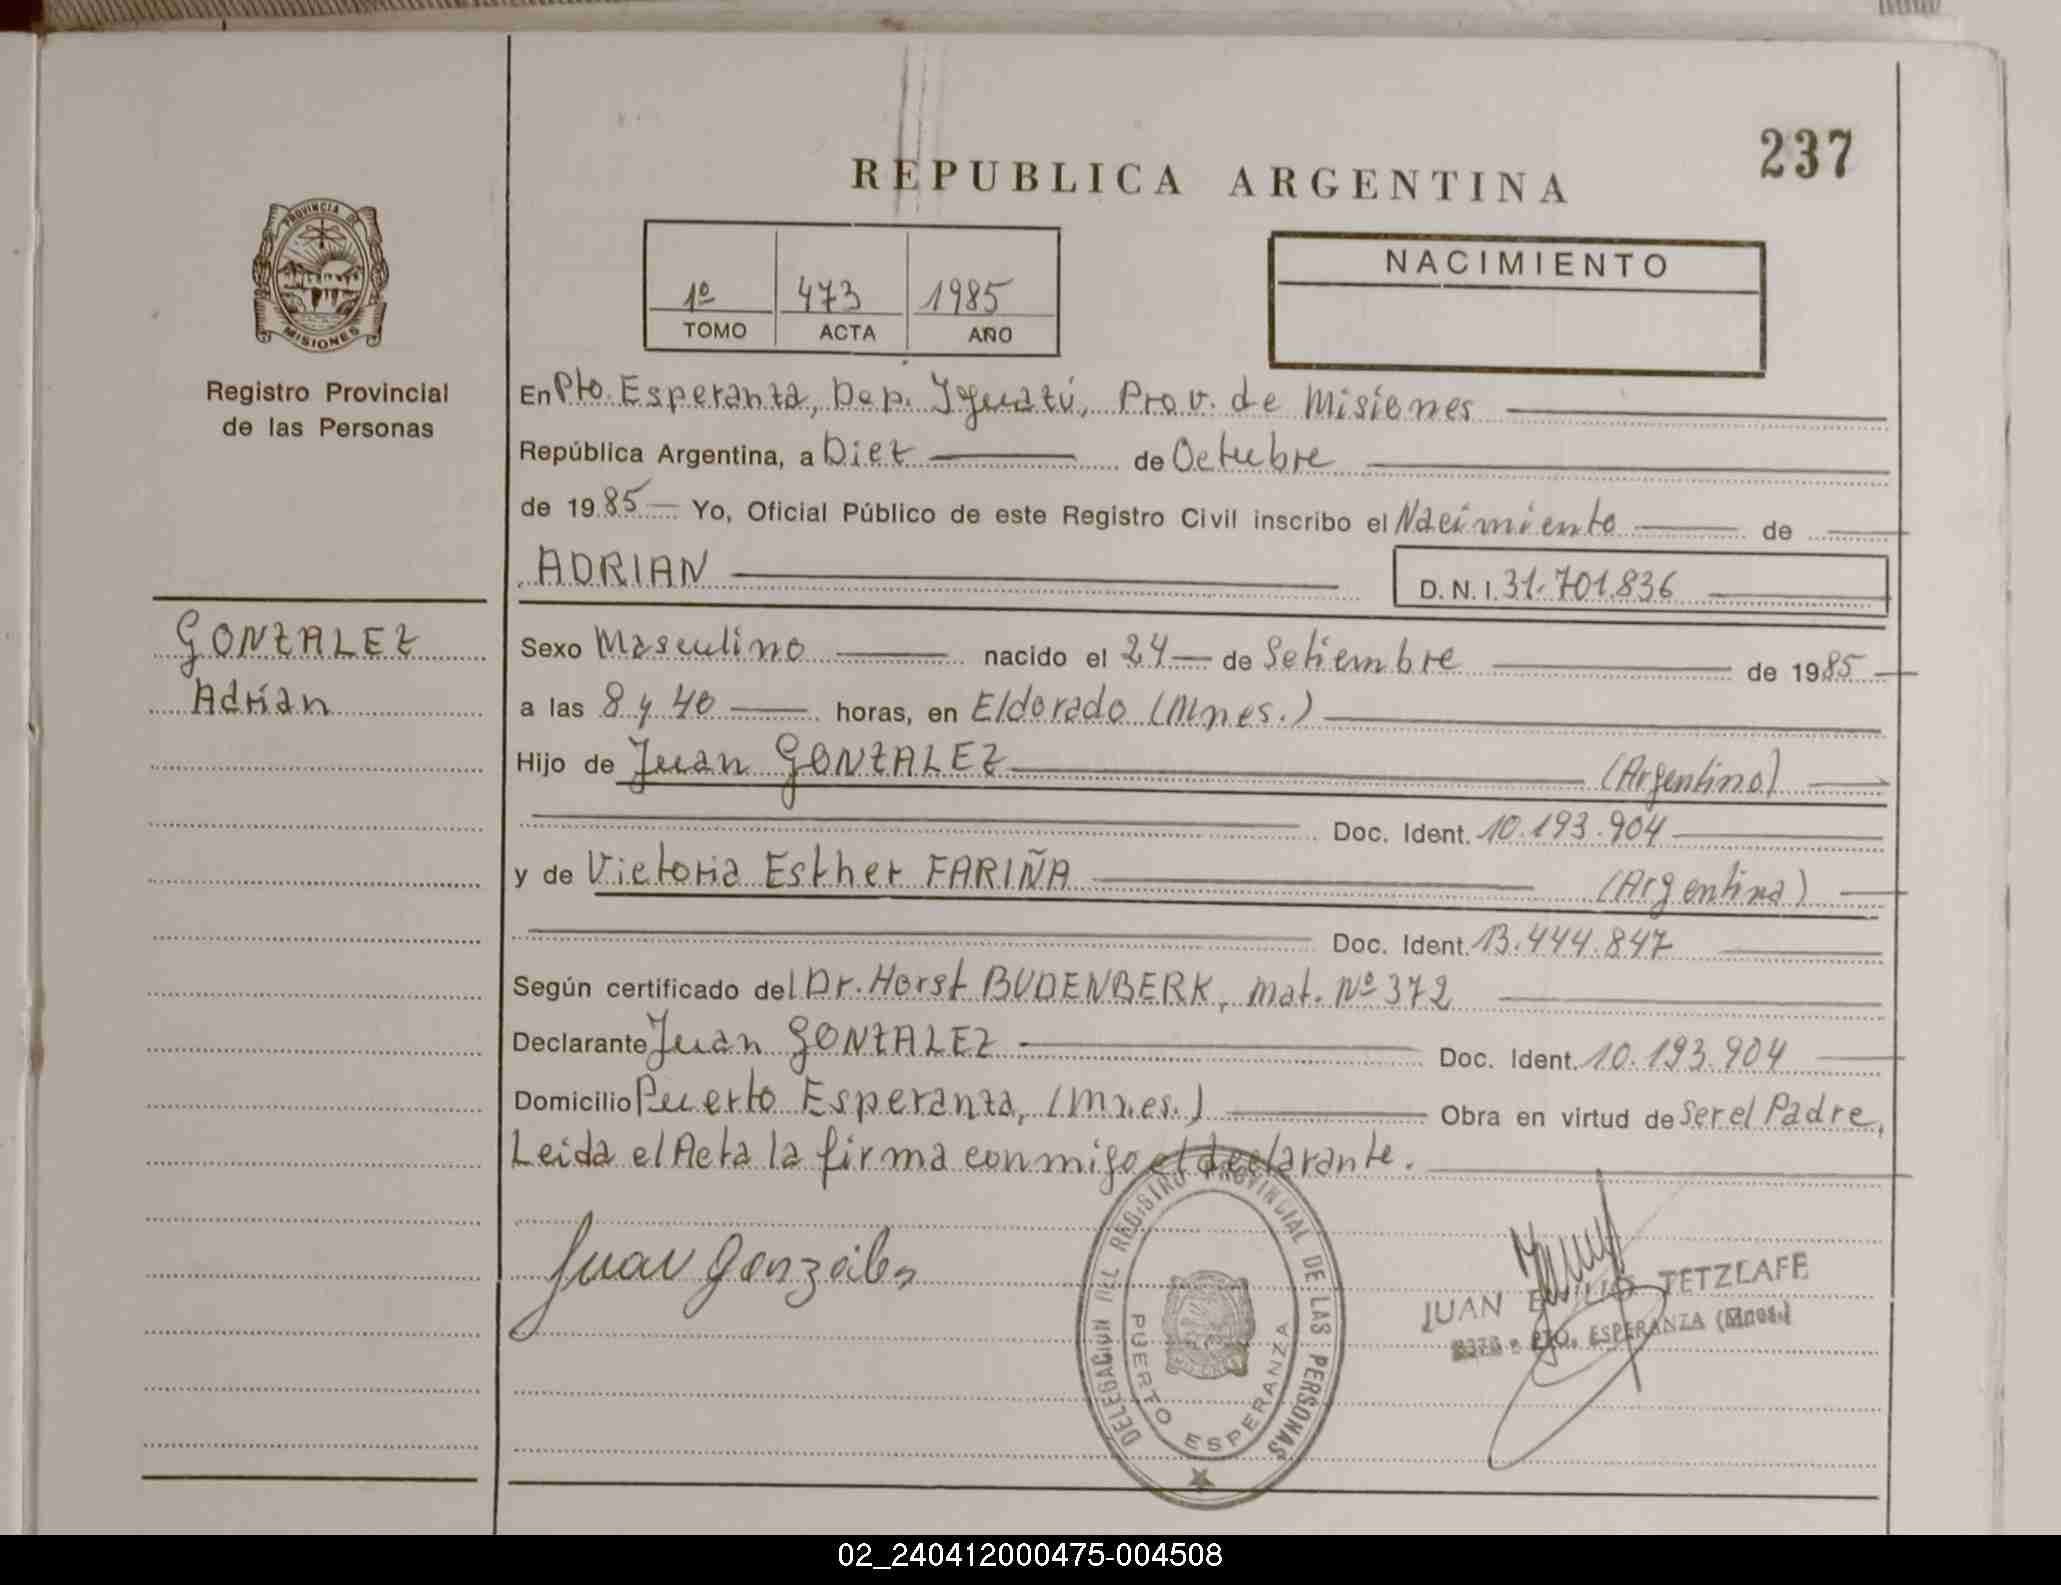 237
REPUBLICA ARGENTINA
PROVINCIA DE
MISIONES
Registro Provincial
de las Personas
1º 473 1985
TOMO ACTA AÑO
NACIMIENTO
En Pto. Esperanza, Dep. Iguazú, Prov. de Misiones
República Argentina, a Diez de Octubre
de 1985 Yo, Oficial Público de este Registro Civil inscribo el Nacimiento de
ADRIAN D. N. I. 31.701.836
GONZALEZ
Adrián
Sexo Masculino nacido el 24 de Setiembre de 1985
a las 8 y 40 horas, en Eldorado (Mnes.)
Hijo de Juan GONZALEZ (Argentino)
Doc. Ident. 10.193.904
y de Victoria Esther FARIÑA (Argentina)
Doc. Ident. 13.444.847
Según certificado del Dr. Horst BUDENBERK, mat. Nº 372
Declarante Juan GONZALEZ Doc. Ident. 10.193.904
Domicilio Puerto Esperanza, (Mnes.) Obra en virtud de Ser el Padre,
Leida el Acta la firma conmigo el declarante.
Juan Gonzáles
DELEGACION DEL REGISTRO PROVINCIAL DE LAS PERSONAS
PUERTO ESPERANZA
MISIONES
JUAN EMILIO TETZLAFE
PTO. ESPERANZA (Mnes.)
02_240412000475-004508